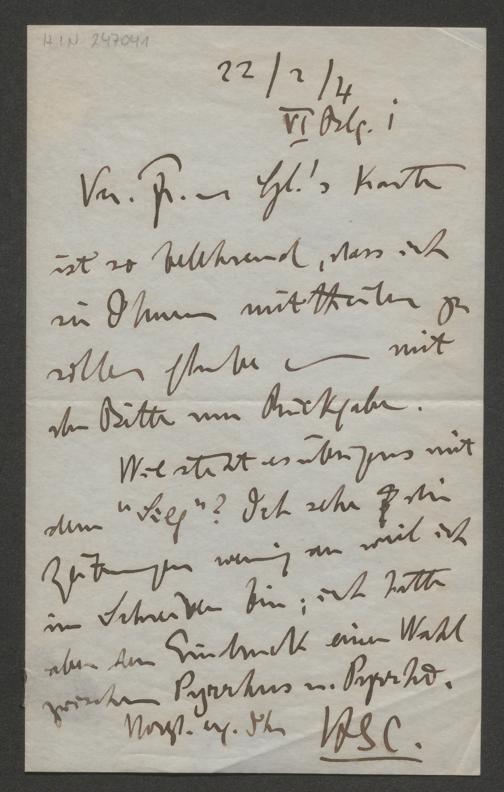 H.I.N. 247041
22/2/4
VI Blg. 1
Ver. Fr. Karte
ist so belehrend, dass ich
sie Ihnen mittheilen zu
sollen glaube — mit
der Bitte um Rückgabe.
Wie steht es übrigens mit
dem "Sieg"? Ich sehe die
Zeitungen wenig an weil ich
im Schreiben bin; ich hatte
aber den Eindruck einer Wahl
zwischen Pyrrhus u.
HSC.